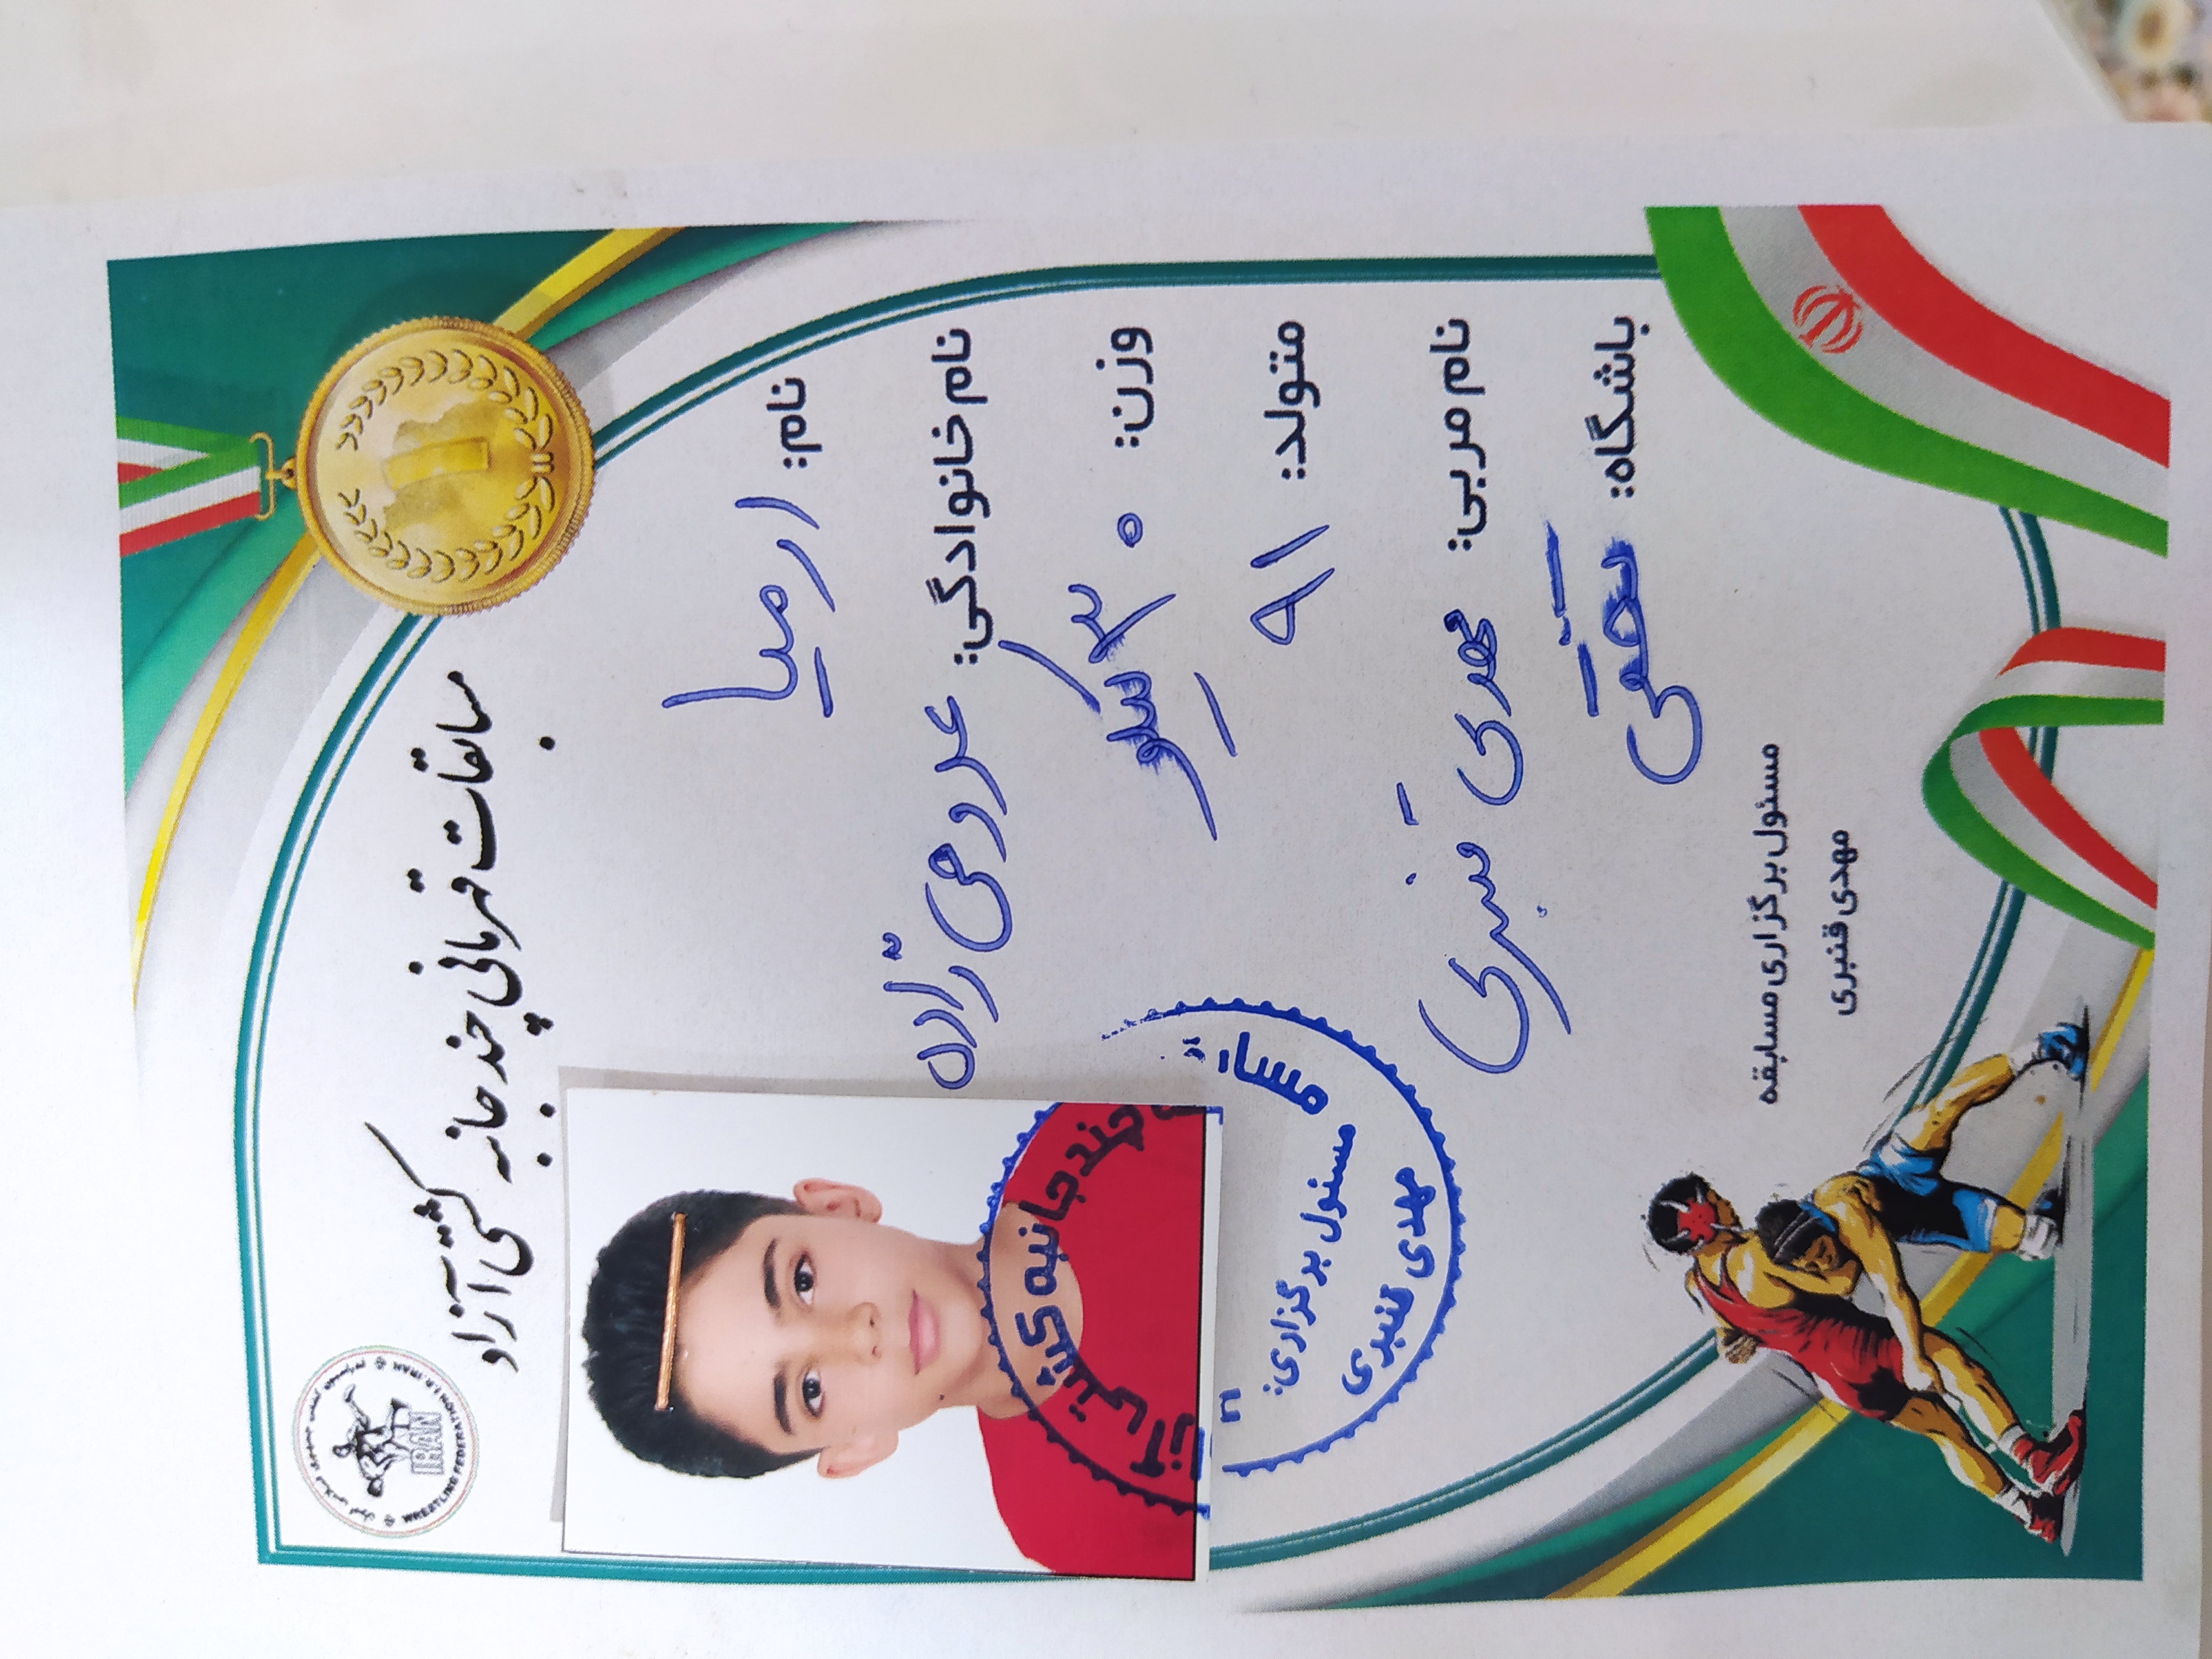 مسابقات قهرمانی چند جانبه کشتی آزاد
WRESTLING FEDERATION I.R.IRAN
IRAN
نام: ارمیا
نام خانوادگی:
وزن: ۳۰ کیلو
متولد: ۹۱
نام مربی: مهدی قنبری
باشگاه:
چندجانبه کشتی
مسئول برگزاری:
مهدی قنبری
مسئول برگزاری مسابقه
مهدی قنبری